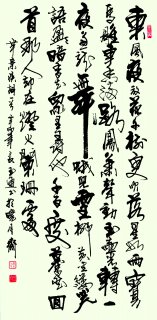 東風夜放花千樹更吹落星如雨寶
馬雕車香滿路鳳簫聲動玉壺光轉一
夜魚龍舞蛾兒雪柳黃金縷笑
語盈盈暗香去衆裏尋他千百度驀然回
首那人卻在燈火闌珊處
辛棄疾詞